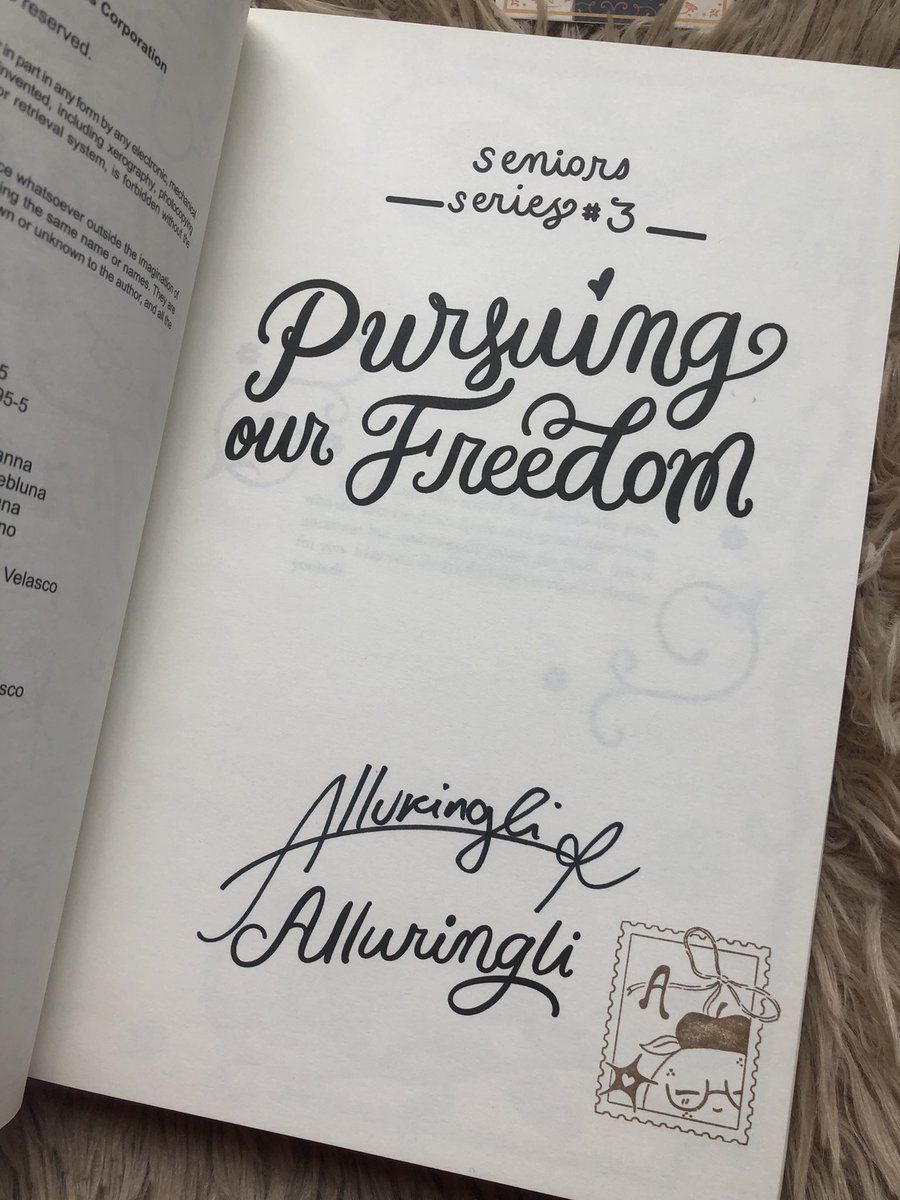 Corporation
reserved.
in part in any form by any electronic, mechanical
invented, including xerography, photocopying
or retrieval system, is forbidden without the
whatsoever outside the imagination of
the same name or names. They are
or unknown to the author, and all the
5
95-5
Velasco
seniors
series #3
Pursuing
our Freedom
Alluringli
Alluringli
A